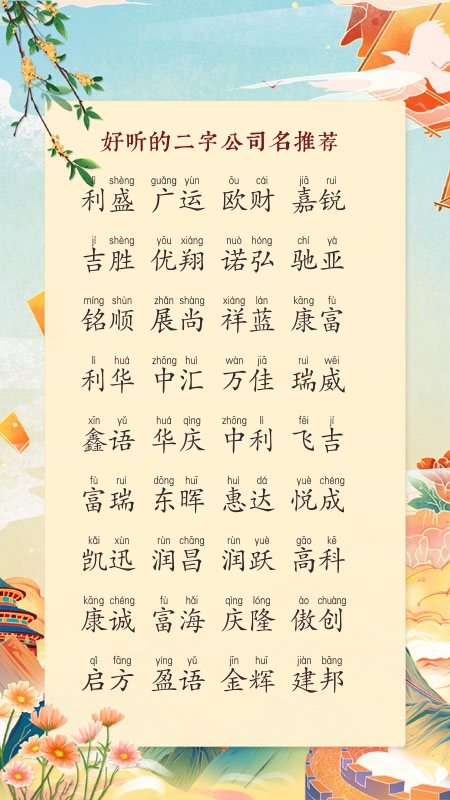 好听的二字公司名推荐
lì shèng guǎng yùn ōu cái jiā ruì
利盛 广运 欧财 嘉锐
jí shèng yōu xiáng nuò hóng chí yà
吉胜 优翔 诺弘 驰亚
míng shùn zhǎn shàng xiáng lán kāng fù
铭顺 展尚 祥蓝 康富
lì huá zhōng huì wàn jiā ruì wēi
利华 中汇 万佳 瑞威
xīn yǔ huá qìng zhōng lì fēi jí
鑫语 华庆 中利 飞吉
fù ruì dōng huī huì dá yuè chéng
富瑞 东晖 惠达 悦成
kǎi xùn rùn chāng rùn yuè gāo kē
凯迅 润昌 润跃 高科
kāng chéng fù hǎi qìng lóng ào chuàng
康诚 富海 庆隆 傲创
qǐ fāng yíng yǔ jīn huī jiàn bāng
启方 盈语 金辉 建邦